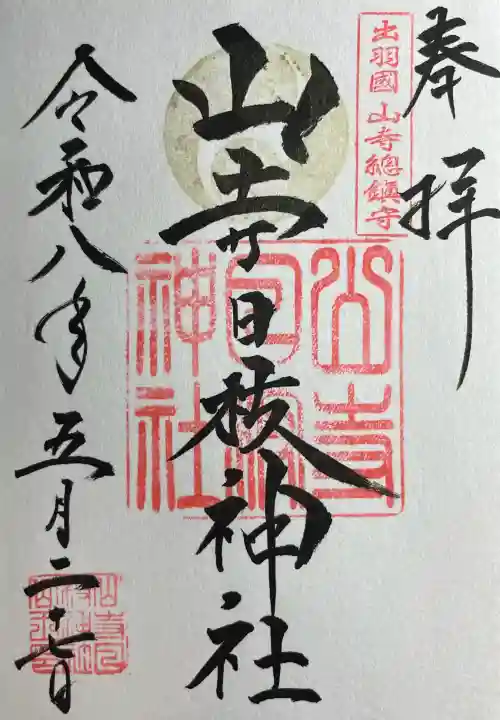 奉拝
出羽國 山寺總鎮守
山寺日枝神社
山寺日枝神社
令和八年五月二十七日